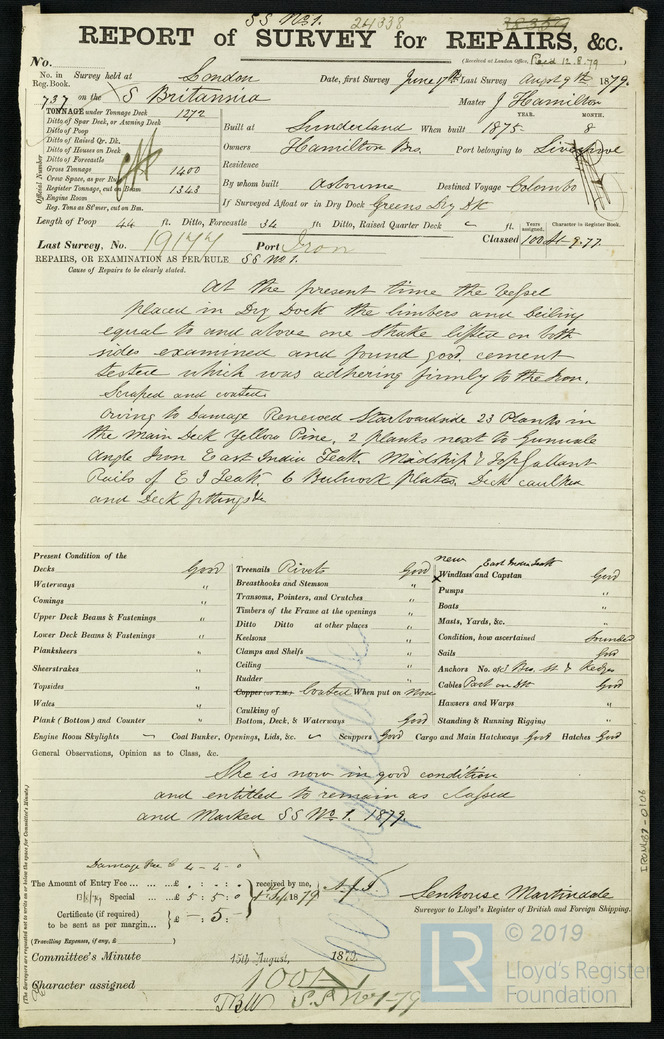 SS No 1. 24338
REPORT of SURVEY for REPAIRS, &c.
(Received at London Office, Recd 12.8.79
No.
No. in Reg. Book. Survey held at London Date, first Survey June 17th Last Survey August 9th 1879.
737 on the S Britannia Master J Hamilton
TONNAGE under Tonnage Deck 1272
Ditto of Spar Deck, or Awning Deck
Ditto of Poop
Ditto of Raised Qr. Dk.
Ditto of Houses on Deck
Ditto of Forecastle
Gross Tonnage 1400
Crew Space, as per Rule
Register Tonnage, cut on Beam 1343
Engine Room
Reg. Tons as St'mer, cut on Bm.
Official Number
YEAR. MONTH.
Built at Sunderland When built 1875 8
Owners Hamilton Bros. Port belonging to Liverpool
Residence
By whom built Osbourne Destined Voyage Colombo
If Surveyed Afloat or in Dry Dock Greens Dry Dk
Length of Poop 44 ft. Ditto, Forecastle 34 ft. Ditto, Raised Quarter Deck ft.
Years assigned. Character in Register Book.
Last Survey, No. 19177 Port Iron Classed 100 A1-9.77
REPAIRS, OR EXAMINATION AS PER RULE SS No 1.
Cause of Repairs to be clearly stated.
At the present time the Vessel
placed in Dry Dock the limbers and Ceiling
equal to and above one strake lifted on both
sides examined and found good. cement
tested which was adhering firmly to the Iron.
Scraped and coated.
Owing to Damage Renewed Starboardside 23 Planks in
the Main Deck Yellow Pine, 2 planks next to Gunwale
Angle Iron East India Teak. Midship & Topgallant
Rails of E I Teak. 6 Bulwork Plates. Deck caulked
and Deck fittings &c
Present Condition of the
Decks Good
Waterways "
Comings "
Upper Deck Beams & Fastenings "
Lower Deck Beams & Fastenings "
Planksheers "
Sheerstrakes "
Topsides "
Wales "
Plank (Bottom) and Counter "
Treenails Rivets Good
Breasthooks and Stemson "
Transoms, Pointers, and Crutches "
Timbers of the Frame at the openings "
Ditto Ditto at other places "
Keelsons "
Clamps and Shelfs "
Ceiling "
Rudder "
Copper (or Y.M.) Coated When put on Now
Caulking of
Bottom, Deck, & Waterways Good
new East India Teak
Windlass and Capstan Good
Pumps "
Boats "
Masts, Yards, &c. "
Condition, how ascertained Sounded
Sails Good
Anchors No. of 3 Bra. St. & Kedges
Cables Part on Dk Good
Hawsers and Warps "
Standing & Running Rigging "
Engine Room Skylights Coal Bunker, Openings, Lids, &c. Scuppers Good Cargo and Main Hatchways Good Hatches Good
General Observations, Opinion as to Class, &c.
She is now in good condition
and entitled to remain as classed
and Marked SS No 1. 1879.
Damage Fee £ 4-4-0
The Amount of Entry Fee ... £ : : received by me,
Special ... £ 5 : 5 : 0 1879
Certificate (if required)
to be sent as per margin... £ - : 5 : -
(Travelling Expenses, if any, £ )
Senhouse Martindale
Surveyor to Lloyd's Register of British and Foreign Shipping.
Committee's Minute 15th August, 1879
Character assigned 100 A1
S.S. No 1-79
(The Surveyors are requested not to write on or below the space for Committee's Minute.)
IRON687-0106
© 2019
LR
Lloyd's Register
Foundation